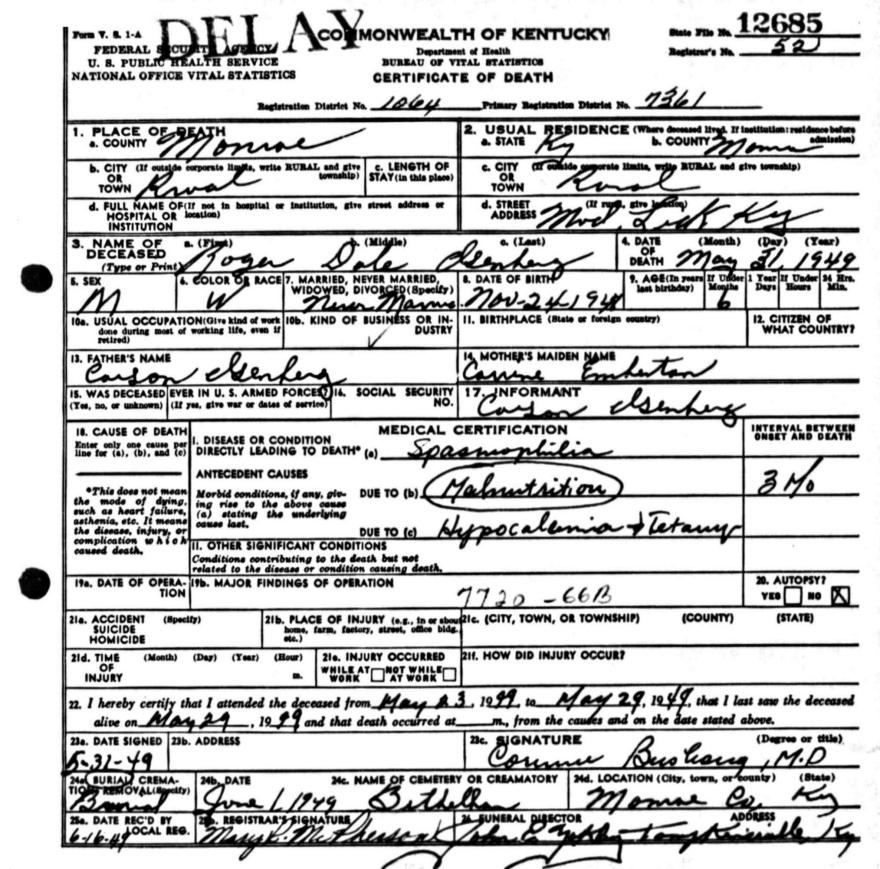 DELAY
Form V. S. 1-A
COMMONWEALTH OF KENTUCKY
State File No. 12685
FEDERAL SECURITY AGENCY
Department of Health
Registrar's No. 52
U. S. PUBLIC HEALTH SERVICE
BUREAU OF VITAL STATISTICS
NATIONAL OFFICE VITAL STATISTICS
CERTIFICATE OF DEATH
Registration District No. 1064 Primary Registration District No. 7361
1. PLACE OF DEATH
a. COUNTY Monroe
2. USUAL RESIDENCE (Where deceased lived. If institution: residence before admission)
a. STATE Ky b. COUNTY Monroe
b. CITY (If outside corporate limits, write RURAL and give township) OR TOWN Rural
c. LENGTH OF STAY (in this place)
c. CITY (If outside corporate limits, write RURAL and give township) OR TOWN Rural
d. FULL NAME OF (If not in hospital or institution, give street address or location) HOSPITAL OR INSTITUTION
d. STREET (If rural, give location) ADDRESS Mud Lick Ky
3. NAME OF DECEASED (Type or Print)
a. (First) b. (Middle) c. (Last)
Roger Dale Isenberg
4. DATE OF DEATH (Month) (Day) (Year)
May 31, 1949
5. SEX M
6. COLOR OR RACE W
7. MARRIED, NEVER MARRIED, WIDOWED, DIVORCED (Specify)
Never
8. DATE OF BIRTH
Nov-24-1948
9. AGE (In years last birthday) If Under 1 Year Months Days If Under 24 Hrs. Hours Min.
6
10a. USUAL OCCUPATION (Give kind of work done during most of working life, even if retired)
10b. KIND OF BUSINESS OR INDUSTRY
11. BIRTHPLACE (State or foreign country)
12. CITIZEN OF WHAT COUNTRY?
13. FATHER'S NAME
Carson Isenberg
14. MOTHER'S MAIDEN NAME
Corrine Emberton
15. WAS DECEASED EVER IN U. S. ARMED FORCES?
(Yes, no, or unknown) (If yes, give war or dates of service)
16. SOCIAL SECURITY NO.
17. INFORMANT
Carson Isenberg
18. CAUSE OF DEATH
Enter only one cause per line for (a), (b), and (c)
MEDICAL CERTIFICATION
INTERVAL BETWEEN ONSET AND DEATH
I. DISEASE OR CONDITION DIRECTLY LEADING TO DEATH* (a) Spasmophilia
*This does not mean the mode of dying, such as heart failure, asthenia, etc. It means the disease, injury, or complication which caused death.
ANTECEDENT CAUSES
Morbid conditions, if any, giving rise to the above cause (a) stating the underlying cause last.
DUE TO (b) Malnutrition 3 Mo
DUE TO (c) Hypocalcemia & Tetany
II. OTHER SIGNIFICANT CONDITIONS
Conditions contributing to the death but not related to the disease or condition causing death.
19a. DATE OF OPERATION
19b. MAJOR FINDINGS OF OPERATION
7720 -66B
20. AUTOPSY?
YES NO X
21a. ACCIDENT SUICIDE HOMICIDE (Specify)
21b. PLACE OF INJURY (e.g., in or about home, farm, factory, street, office bldg. etc.)
21c. (CITY, TOWN, OR TOWNSHIP) (COUNTY) (STATE)
21d. TIME OF INJURY (Month) (Day) (Year) (Hour) m.
21e. INJURY OCCURRED
WHILE AT WORK NOT WHILE AT WORK
21f. HOW DID INJURY OCCUR?
22. I hereby certify that I attended the deceased from May 23, 1949, to May 29, 1949, that I last saw the deceased
alive on May 29, 1949 and that death occurred at m., from the causes and on the date stated above.
23a. DATE SIGNED
5-31-49
23b. ADDRESS
23c. SIGNATURE (Degree or title)
M.D
24a. BURIAL, CREMATION, REMOVAL (Specify)
Burial
24b. DATE
June 1, 1949
24c. NAME OF CEMETERY OR CREAMATORY
24d. LOCATION (City, town, or county) (State)
Monroe Co. Ky
25a. DATE REC'D BY LOCAL REG.
6-16-49
25b. REGISTRAR'S SIGNATURE
Mary R. McPherson
26. FUNERAL DIRECTOR ADDRESS
John E. Tompkinsville, Ky